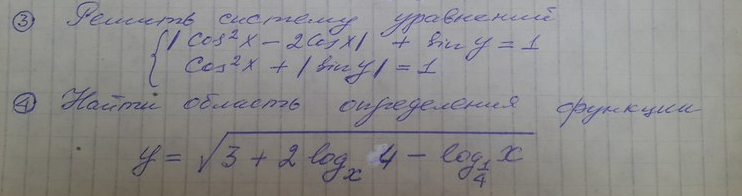 ③ Решить систему уравнений
{ | cos²x - 2cosx | + sin y = 1
cos²x + | sin y | = 1
④ Найти область определения функции
y = √(3 + 2 log_x 4 - log_{1/4} x)